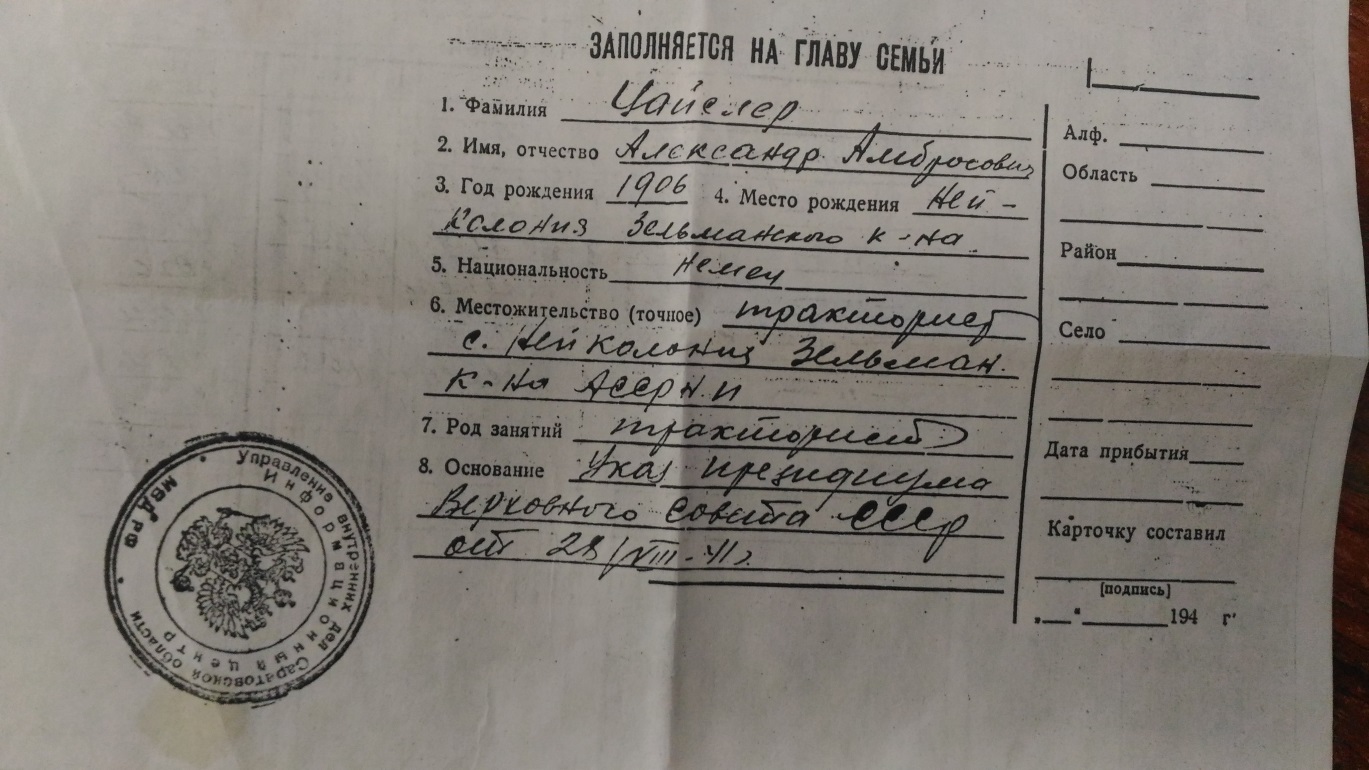 ЗАПОЛНЯЕТСЯ НА ГЛАВУ СЕМЬИ
1. Фамилия Цайслер
2. Имя, отчество Александр Амбросович
3. Год рождения 1906 4. Место рождения Ней-
Колония Зельманского к-на
5. Национальность немец
6. Местожительство (точное) тракторист
с. Нейколония Зельман.
к-на АССРН.П
7. Род занятий тракторист
8. Основание Указ президиума
Верховного совета СССР
от 28/VIII-41г.
Алф.
Область
Район
Село
Дата прибытия
Карточку составил
(подпись)
„ “ 194 г.
Управление внутренних дел Саратовской области • МВД РФ •
Информационный центр